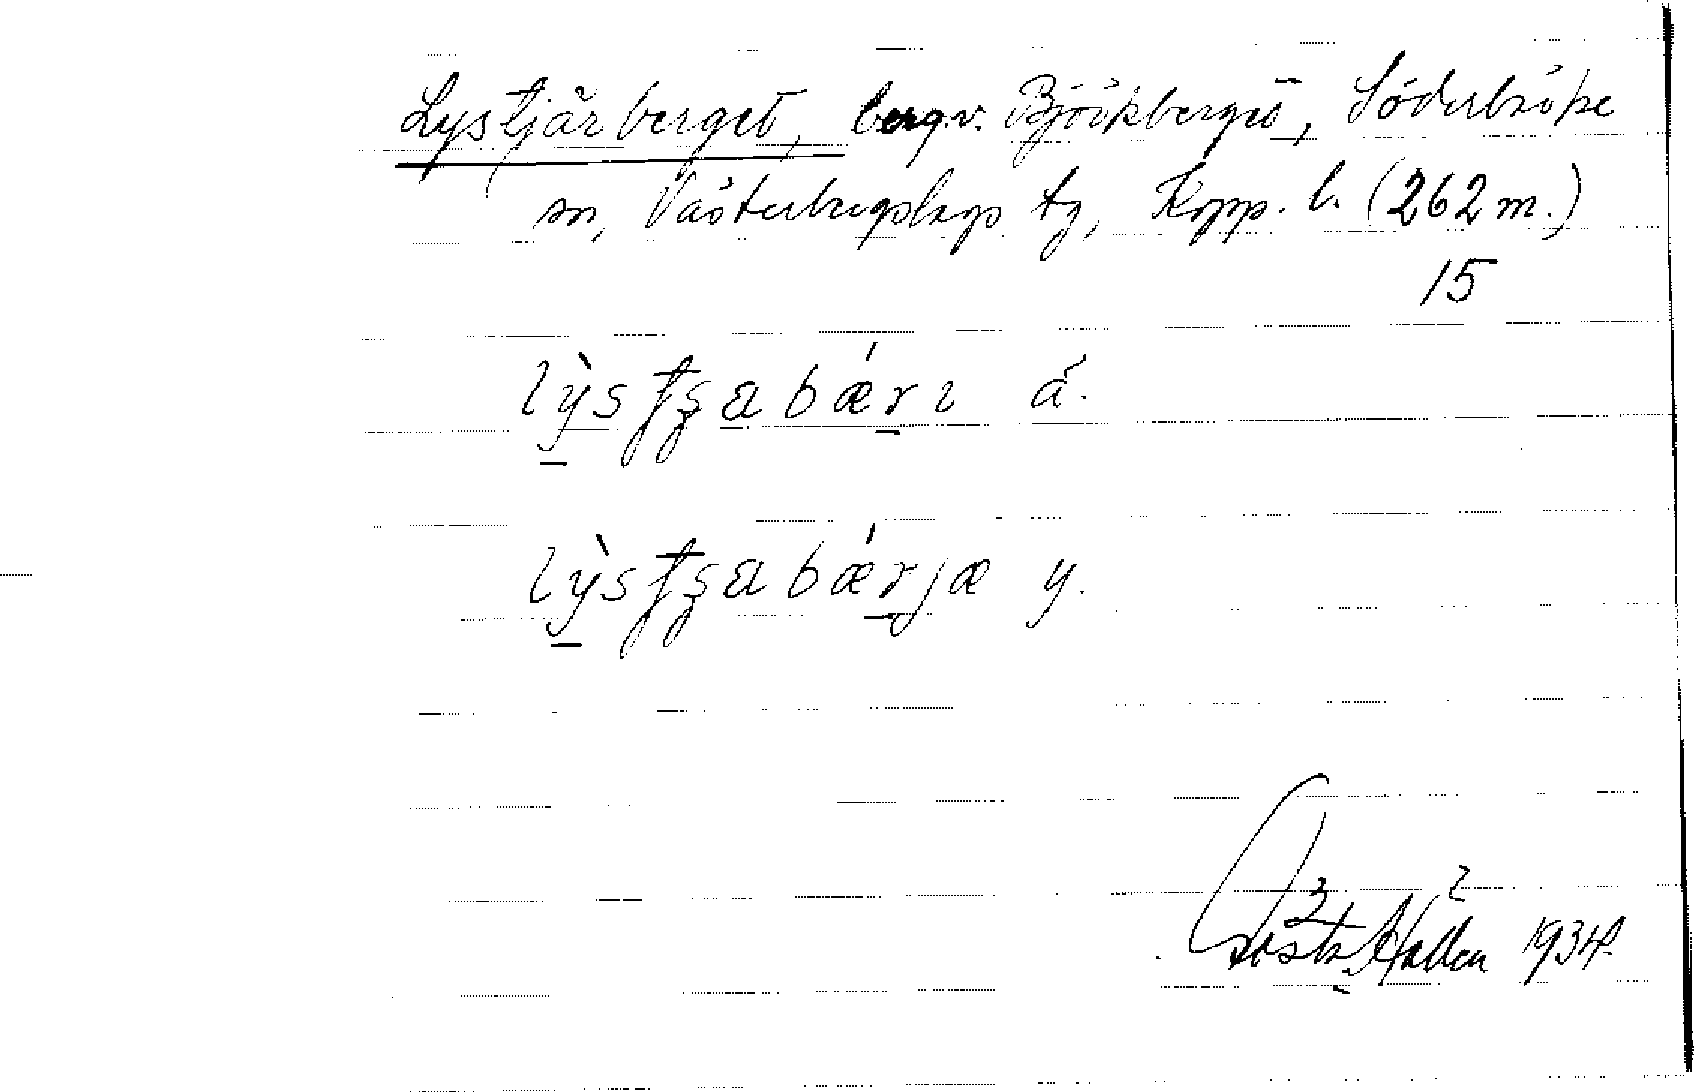 Lystjärberget, berg v. Björkberget, Söderbärke
sn, Västerbergslags tg, Kopp. l. (262 m.)
15
lỳsʈʂabǽrɩ ä.
lỳsʈʂabǽrjæ y.
Gösta Hallén 1934.